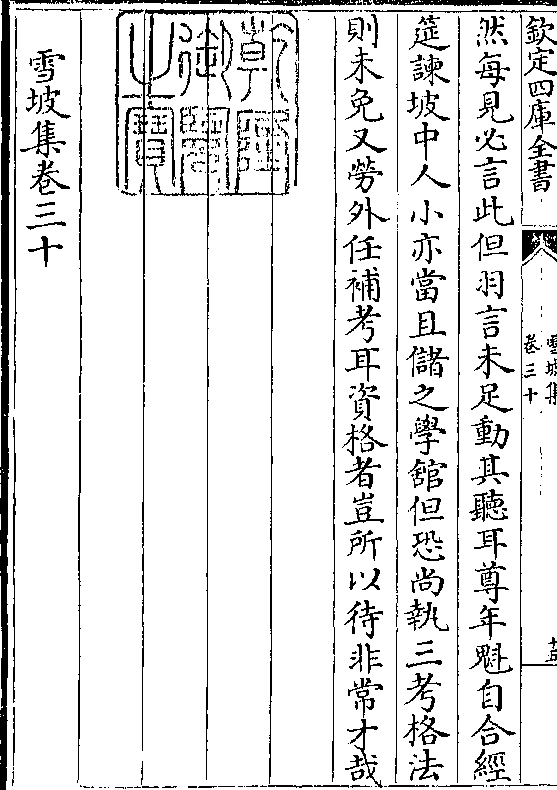 欽定四庫全書
雪坡集
卷三十
十五
然每見必言此但羽言未足動其聽耳尊年魁自合經
筵諫坡中人小亦當且儲之學舘但恐尚執三考格法
則未免又勞外任補考耳資格者豈所以待非常才哉
乾隆御覽之寶
雪坡集卷三十